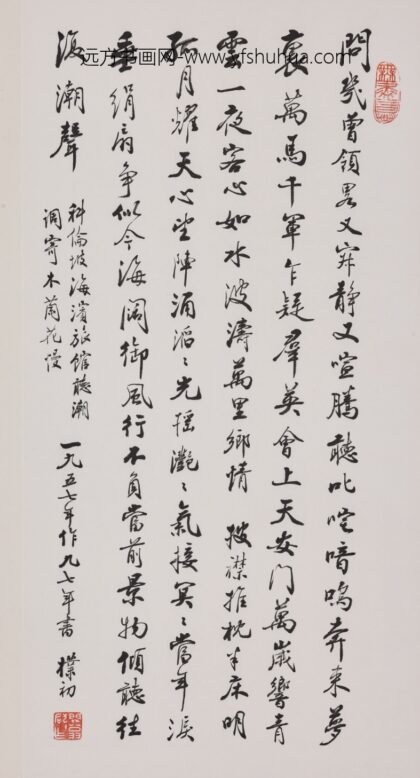 問幾曾領畧又寂靜又喧騰聽叱咤喑嗚奔來夢
裏萬馬千軍乍疑羣英會上天安門萬歲響青
雲一夜客心如水波濤萬里鄉情 披襟推枕半床明
孤月耀天心望陣涌滔〻光搖灩〻氣接冥〻當年淚
垂絹扇爭似今海闊御風行不負當前景物傾聽往
復潮聲
科倫坡海濱旅館聽潮
調寄木蘭花慢
一九五七年作九七年書 樸初
远方书画网-www.yfshuhua.com